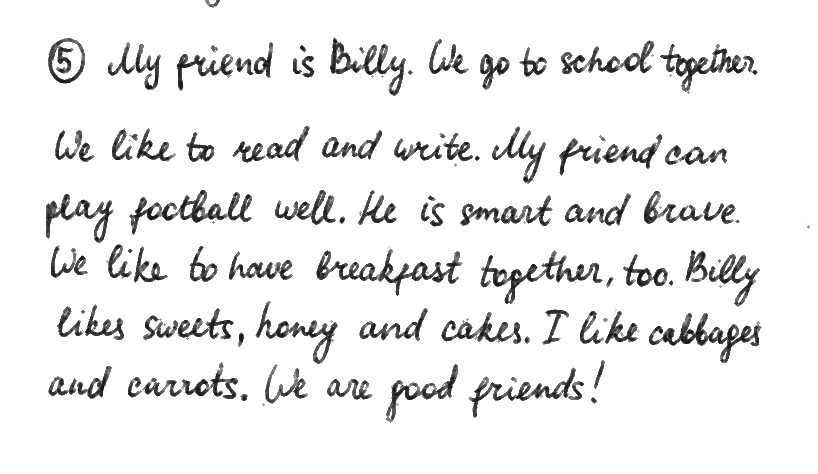 ⑤ My friend is Billy. We go to school together.
We like to read and write. My friend can
play football well. He is smart and brave.
We like to have breakfast together, too. Billy
likes sweets, honey and cakes. I like cabbages
and carrots. We are good friends!